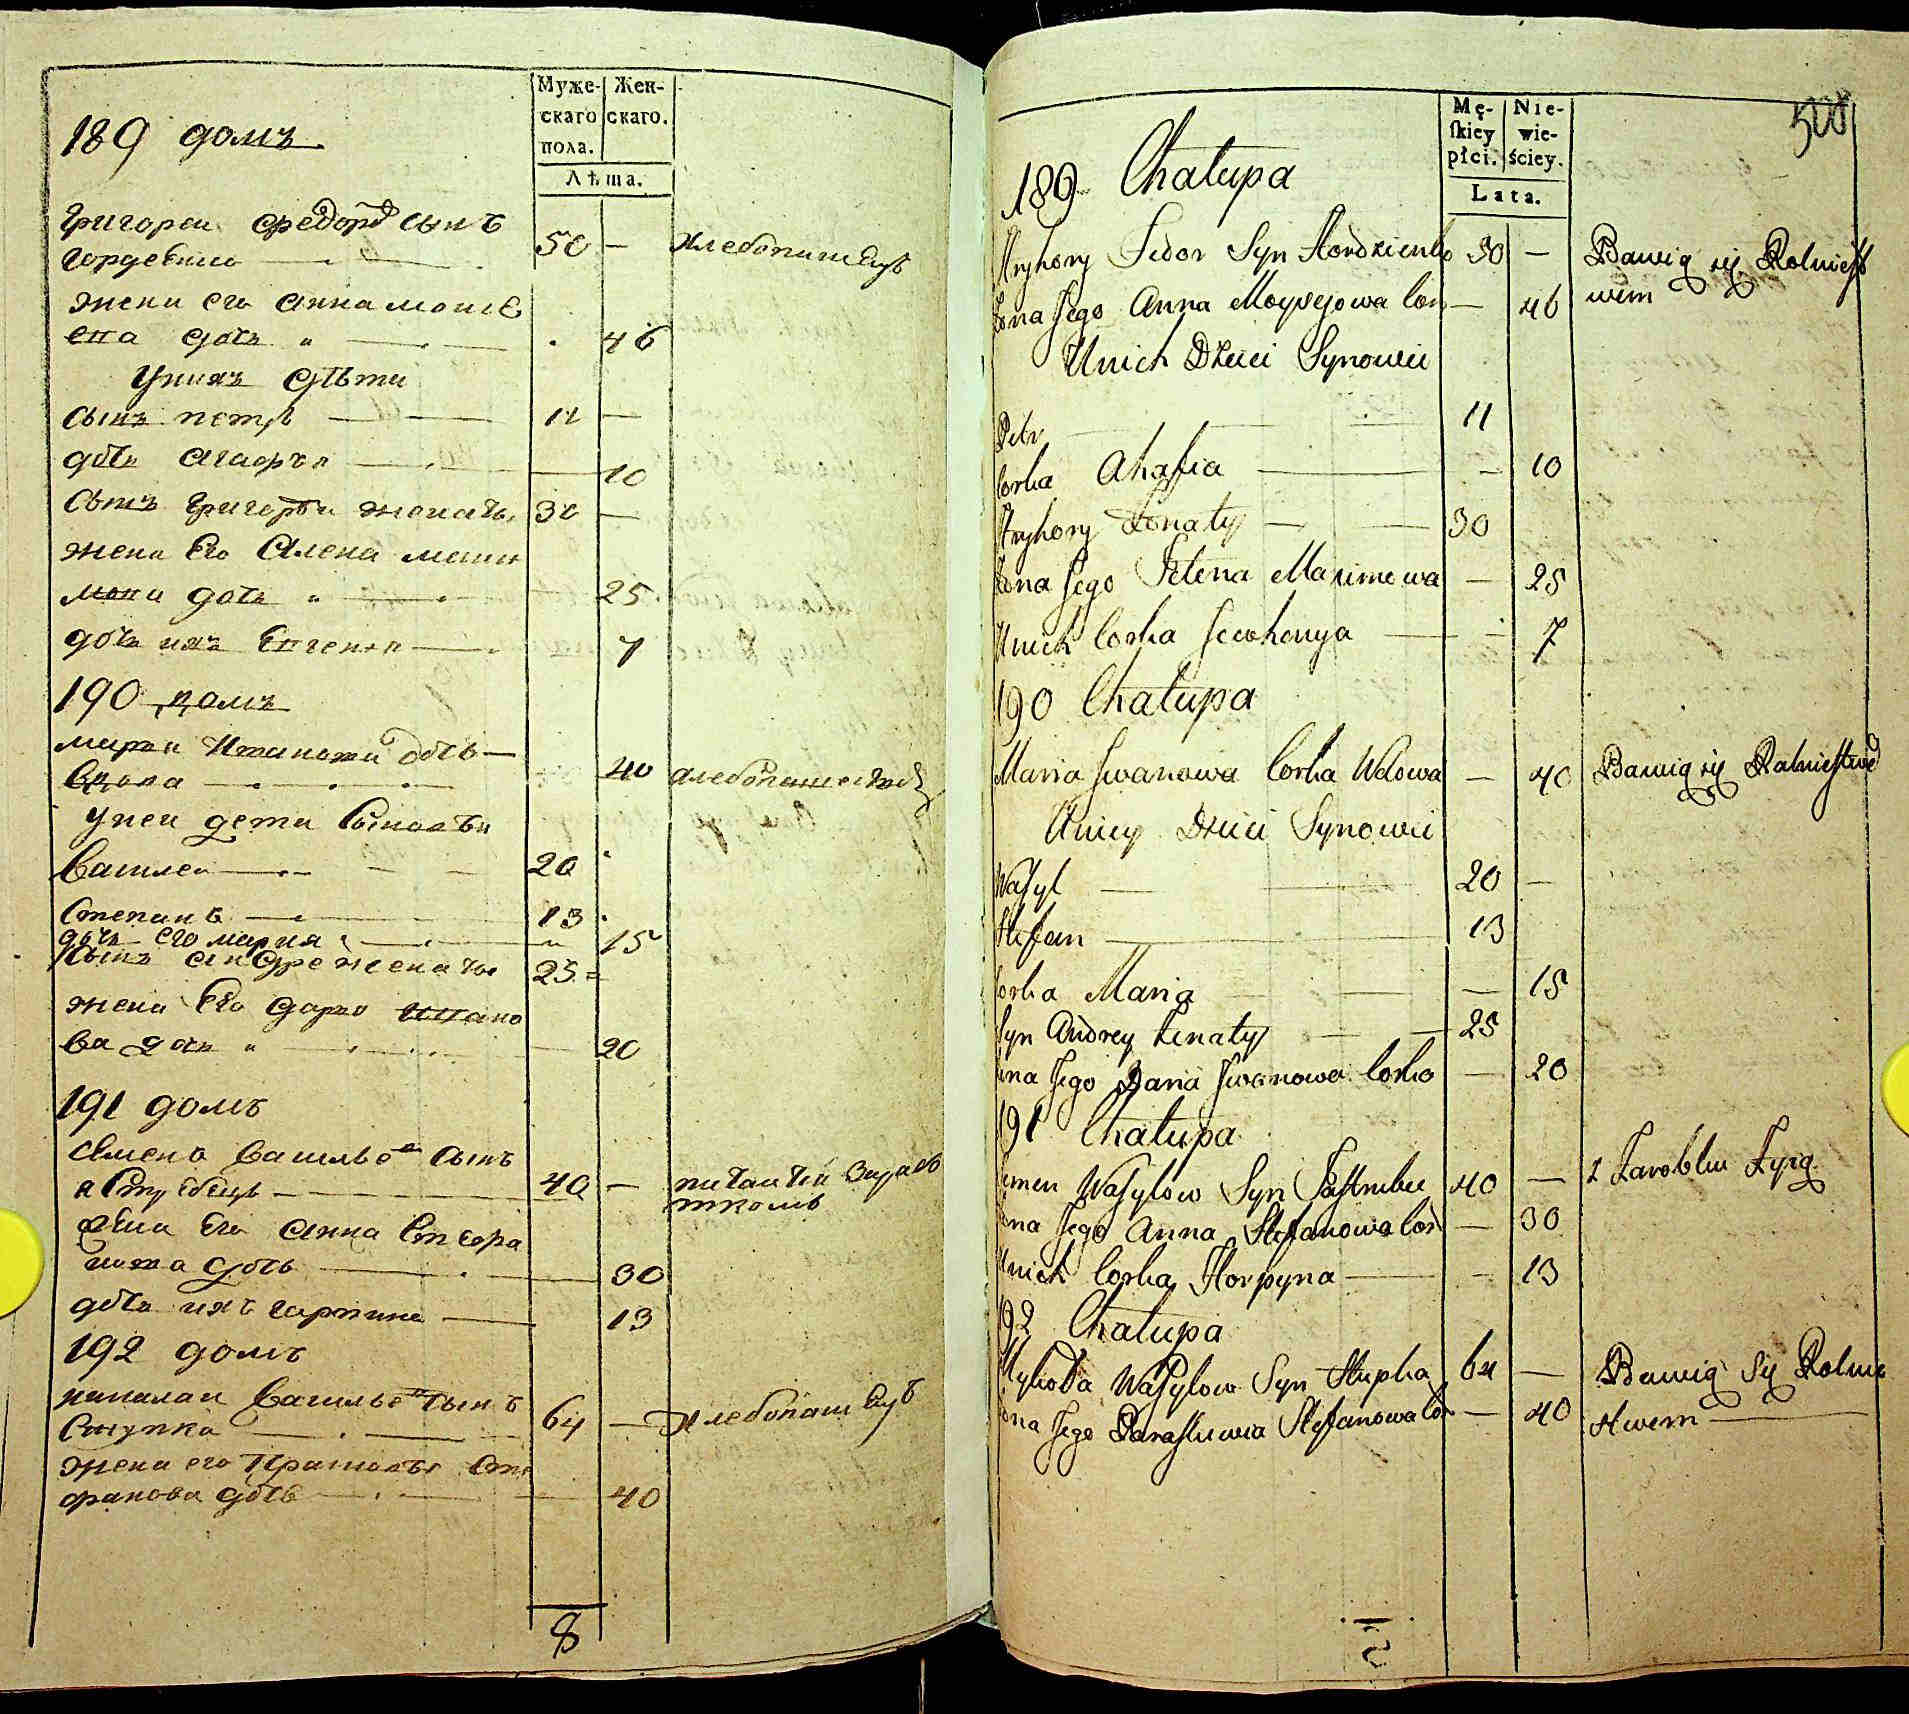 Муже-
скаго
пола.
Жен-
скаго.
Лѣта.
189 домъ
Григореи Федоро сынъ
50 — хлебопашецъ
жена его Анна моисе
ева дочь 46
У них дѣти
сынъ петръ 11 —
дочь агафья 10
сынъ григореи женатъ 30 —
жена Его Алена макси
мова дочь 25
дочь ихъ Евгения 7
190 домъ
мария Иванова дочь
вдова 40
у неи дети сыновья
Василеи 20
Степанъ 13
дочь его мария 15
сынъ андре женаты 25
жена Его дарья Ивано
ва дочь 20
191 домъ
Семенъ Васильев сынъ
40 —
жена Его Анна Стефа
нова дочь 30
дочь ихъ гарпина 13
192 домъ
николаи Васильев сынъ
Ступка 64 — хлебопашецъ
жена его Прасковья Сте
фанова дочь 40
8
Mę-
skiey
płci.
Nie-
wie-
ściey.
Lata.
500
189 Chalupa
Hryhory Fedor Syn Hordzienko 50 — Bawią się Rolnicst
Zona Jego Anna Moysejowa Cor — 46 wem
Unich Dzieci Synowie
Petr 11
Corka Ahafia — 10
Hryhory Zonaty 30
Zona Jego Helena Maximowa — 25
Unich Corka Jewhenya — 7
190 Chalupa
Maria Jwanowa Corka Wdowa — 40 Bawią się Rolnictwe
Uniey Dzieci Synowie
Wasyl 20 —
Stefan 13
Corka Maria — 15
Syn Andrey Zenaty 25
ona Jego Daria Jwanowa Corka — 20
191 Chalupa
emen Wasylow Syn Jastrubec 40 — z Zarobku Zyią
ona Jego Anna Stefanowa Cor — 30
Unich Corka Horpyna — 13
192 Chalupa
Mykola Wasylow Syn Stupka 64 — Bawią Się Rolnic
ona Jego Paraskiewia Stefanowa Cor — 40 stwem